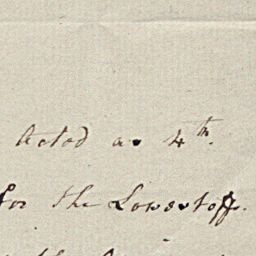 Acted as 4th.
for the Lowestoff.